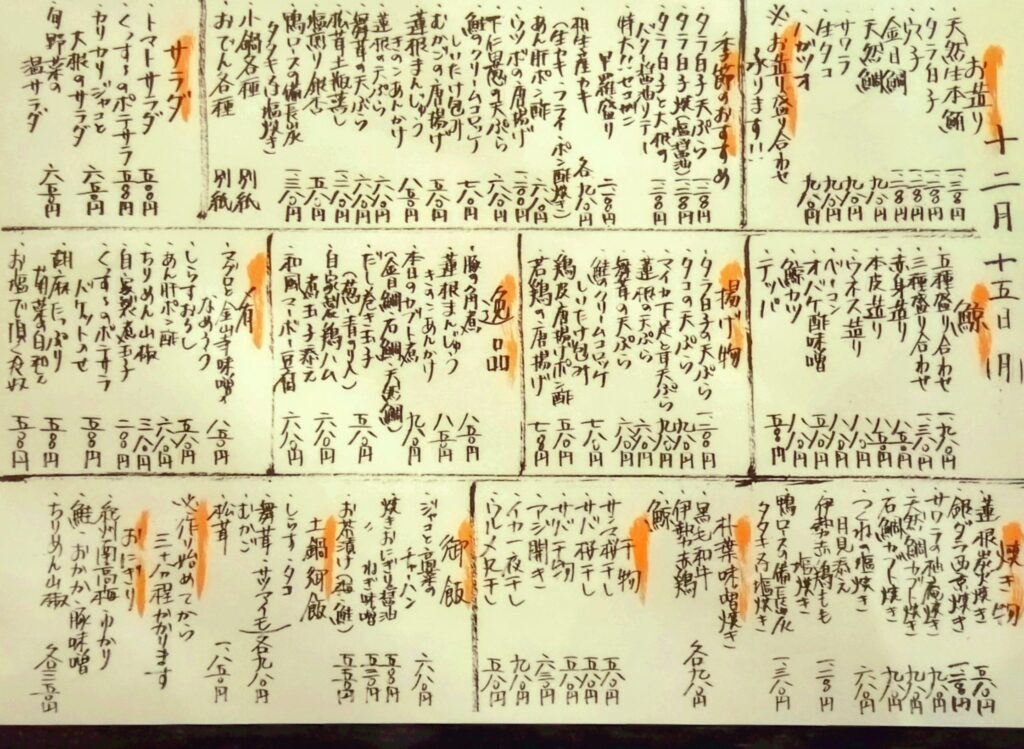 十二月十五日
お造り
天然生本鮪 一、三八〇円
タラ白子 一、二八〇円
ウニ
金目鯛
天然鯛 九八〇円
サワラ 九八〇円
生タコ 九八〇円
カツオ 九八〇円
※お造り盛り合わせ
承ります!!
季節のおすすめ
タラ白子天ぷら 一、二八〇円
タラ白子焼き(塩・醤油) 一、二八〇円
タラ白子と大根の
バター醤油ソテー 一、二八〇円
甲羅盛り 二、二八〇円
相生産カキ
(生カキ・フライ・ポン酢焼き) 各九八〇円
あん肝ポン酢
ウツボの唐揚げ
下仁田葱の天ぷら
鮭クリームコロッケ
しいたけ包み 七八〇円
むかごの唐揚げ
蓮根まんじゅう
きのこあんかけ 八五〇円
蓮根の天ぷら 六八〇円
舞茸の天ぷら 六八〇円
松茸土瓶蒸し
塩煎り銀杏 五八〇円
鴨ロースの備長炭
タタキ(冷・塩焼き) 一、三八〇円
小鍋各種 別紙
おでん各種 別紙
サラダ
トマトサラダ 五八〇円
くずし豆のポテサラ 五八〇円
カリカリジャコと
大根のサラダ 六五〇円
旬野菜の
温サラダ 六五〇円
鯨
五種盛り合わせ
三種盛り合わせ
赤身造り
本皮造り
ウネス造り
ベーコン
オバケ酢味噌
鯨カツ
テッパ
揚げ物
タラ白子の天ぷら
タコの天ぷら 九八〇円
マイカ下足と耳天ぷら 九八〇円
蓮根の天ぷら 六八〇円
舞茸の天ぷら 六八〇円
鮭のクリームコロッケ
しいたけ包み 七八〇円
鶏皮唐揚げポン酢 五八〇円
若鶏の唐揚げ 七八〇円
逸品
豚の角煮 八五〇円
蓮根まんじゅう
きのこあんかけ 八五〇円
本日のカブト煮
(金目鯛・石鯛・天然鯛) 九八〇円
だし巻き玉子
(葱・青のり入) 五八〇円
自家製若鶏ハム
煮玉子添え 六八〇円
和風マーボー豆腐 六八〇円
肴
マグロと金山寺味噌の
なめろう 八五〇円
しらすおろし 五八〇円
あん肝ポン酢 六八〇円
ちりめん山椒 三八〇円
自家製煮玉子 二〇〇円
くずし豆のポテサラ
バケットのせ 五八〇円
胡麻たっぷり
菊菜の白和え 五八〇円
お塩で頂く冷奴 五八〇円
焼き物
蓮根炭火焼き 五八〇円
銀ダラ西京焼き 一、二八〇円
サワラの柚庵焼き 九八〇円
天然鯛カブト焼き 九八〇円
石鯛カブト焼き 九八〇円
つくねの塩焼き
月見添え 六八〇円
伊勢赤鶏もも
塩焼き 一、二八〇円
鴨ロースの備長炭
タタキ(冷・塩焼き) 一、三八〇円
朴葉味噌焼き
黒毛和牛
伊勢赤鶏
鯨 各九八〇円
干物
サンマ桜干し 五八〇円
サバ桜干し 五八〇円
サバ干物 五八〇円
アジ開き 六三〇円
イカ一夜干し 九八〇円
ウルメ丸干し 五八〇円
御飯
ジャコと高菜の
チャーハン 六八〇円
焼きおにぎり醤油 五八〇円
〃 ねぎ味噌 五三〇円
お茶漬け(梅・鮭) 五五〇円
土鍋御飯
しらす・タコ
舞茸・サツマイモ
むかご 各九八〇円
松茸 一、八五〇円
※作り始めてから
三十分程かかります
おにぎり
紀州南高梅・ゆかり
鮭・おかか・豚味噌
ちりめん山椒 各三五〇円